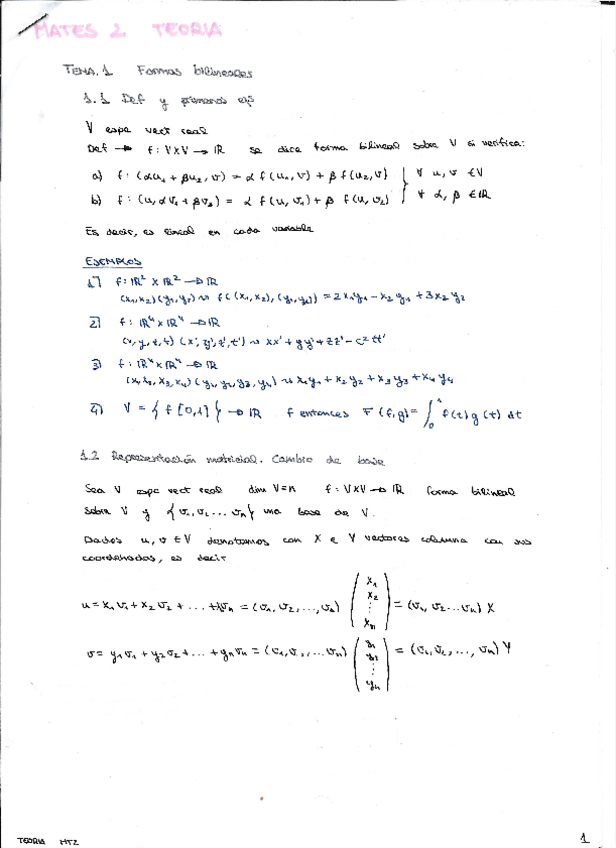 MATES 2 TEORIA
TEMA.1 Formas bilineales
1.1 Def y primeros ejs
V espa vect real
Def → f: V×V → IR se dice forma bilineal sobre V si verifica:
a) f: (αu₁ + βu₂, v) = α f(u₁, v) + β f(u₂, v) } ∀ u, v ∈ V
b) f: (u, αv₁ + βv₂) = α f(u, v₁) + β f(u, v₂) } ∀ α, β ∈ IR
Es decir, es lineal en cada variable
EJEMPLOS
1) f: IR² × IR² → IR
(x₁, x₂) (y₁, y₂) ⇝ f((x₁, x₂), (y₁, y₂)) = 2x₁y₁ - x₂y₁ + 3x₂y₂
2) f: IR⁴ × IR⁴ → IR
(x, y, z, t) (x', y', z', t') ⇝ xx' + yy' + zz' - c² tt'
3) f: IR⁴ × IR⁴ → IR
(x₁, x₂, x₃, x₄) (y₁, y₂, y₃, y₄) ⇝ x₁y₁ + x₂y₂ + x₃y₃ + x₄y₄
4) V = { f [0,1] } → IR f entonces F (f,g) = ∫₀¹ f(t) g(t) dt
1.2 Representación matricial. Cambio de base
Sea V espc vect real dim V=n f: V×V → IR forma bilineal
sobre V y { v₁, v₂ ... vₙ } una base de V.
Dados u, v ∈ V denotamos con X e Y vectores columna con sus
coordenadas, es decir
u = x₁v₁ + x₂v₂ + ... + xₙvₙ = (v₁, v₂, ..., vₙ) (x₁ x₂ ⋮ xₙ) = (v₁, v₂ ... vₙ) X
v = y₁v₁ + y₂v₂ + ... + yₙvₙ = (v₁, v₂, ... vₙ) (y₁ y₂ ⋮ yₙ) = (v₁, v₂, ..., vₙ) Y
TEORIA MT2
1